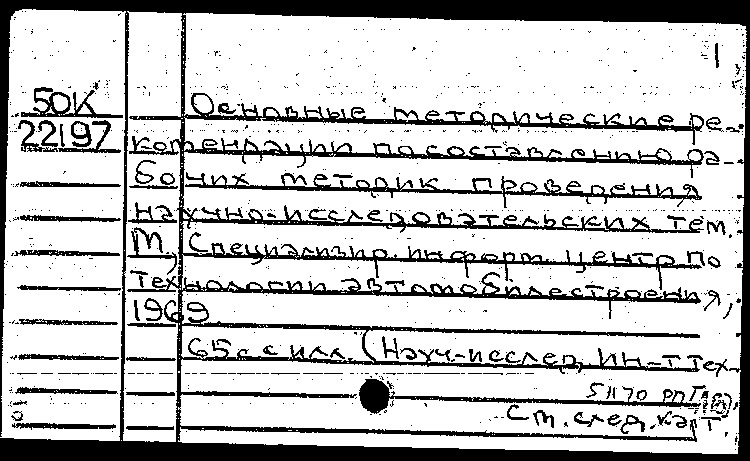 1
50К Основные методические ре-
22197 комендации по составлению ра-
бочих методик проведения
научно-исследовательских тем.
М., Специализир. информ. центр по
технологии автомобилестроения,
1969
65с. с илл. (Науч.-исслед. ин-т тех-
51170
См. след. карт.